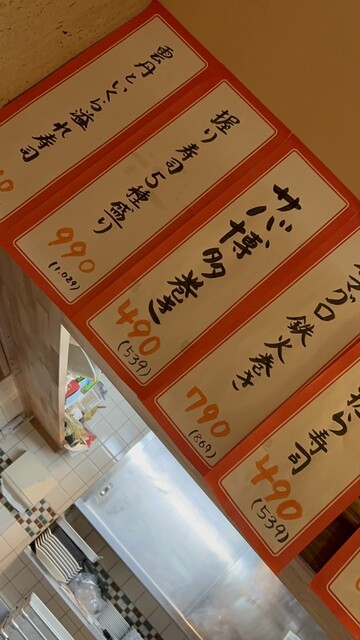 雲丹といくら溢れ寿司
握り寿司5種盛り
990
(1,089)
サバ博多巻き
490
(539)
マグロ鉄火巻き
790
(869)
寿司
490
(539)